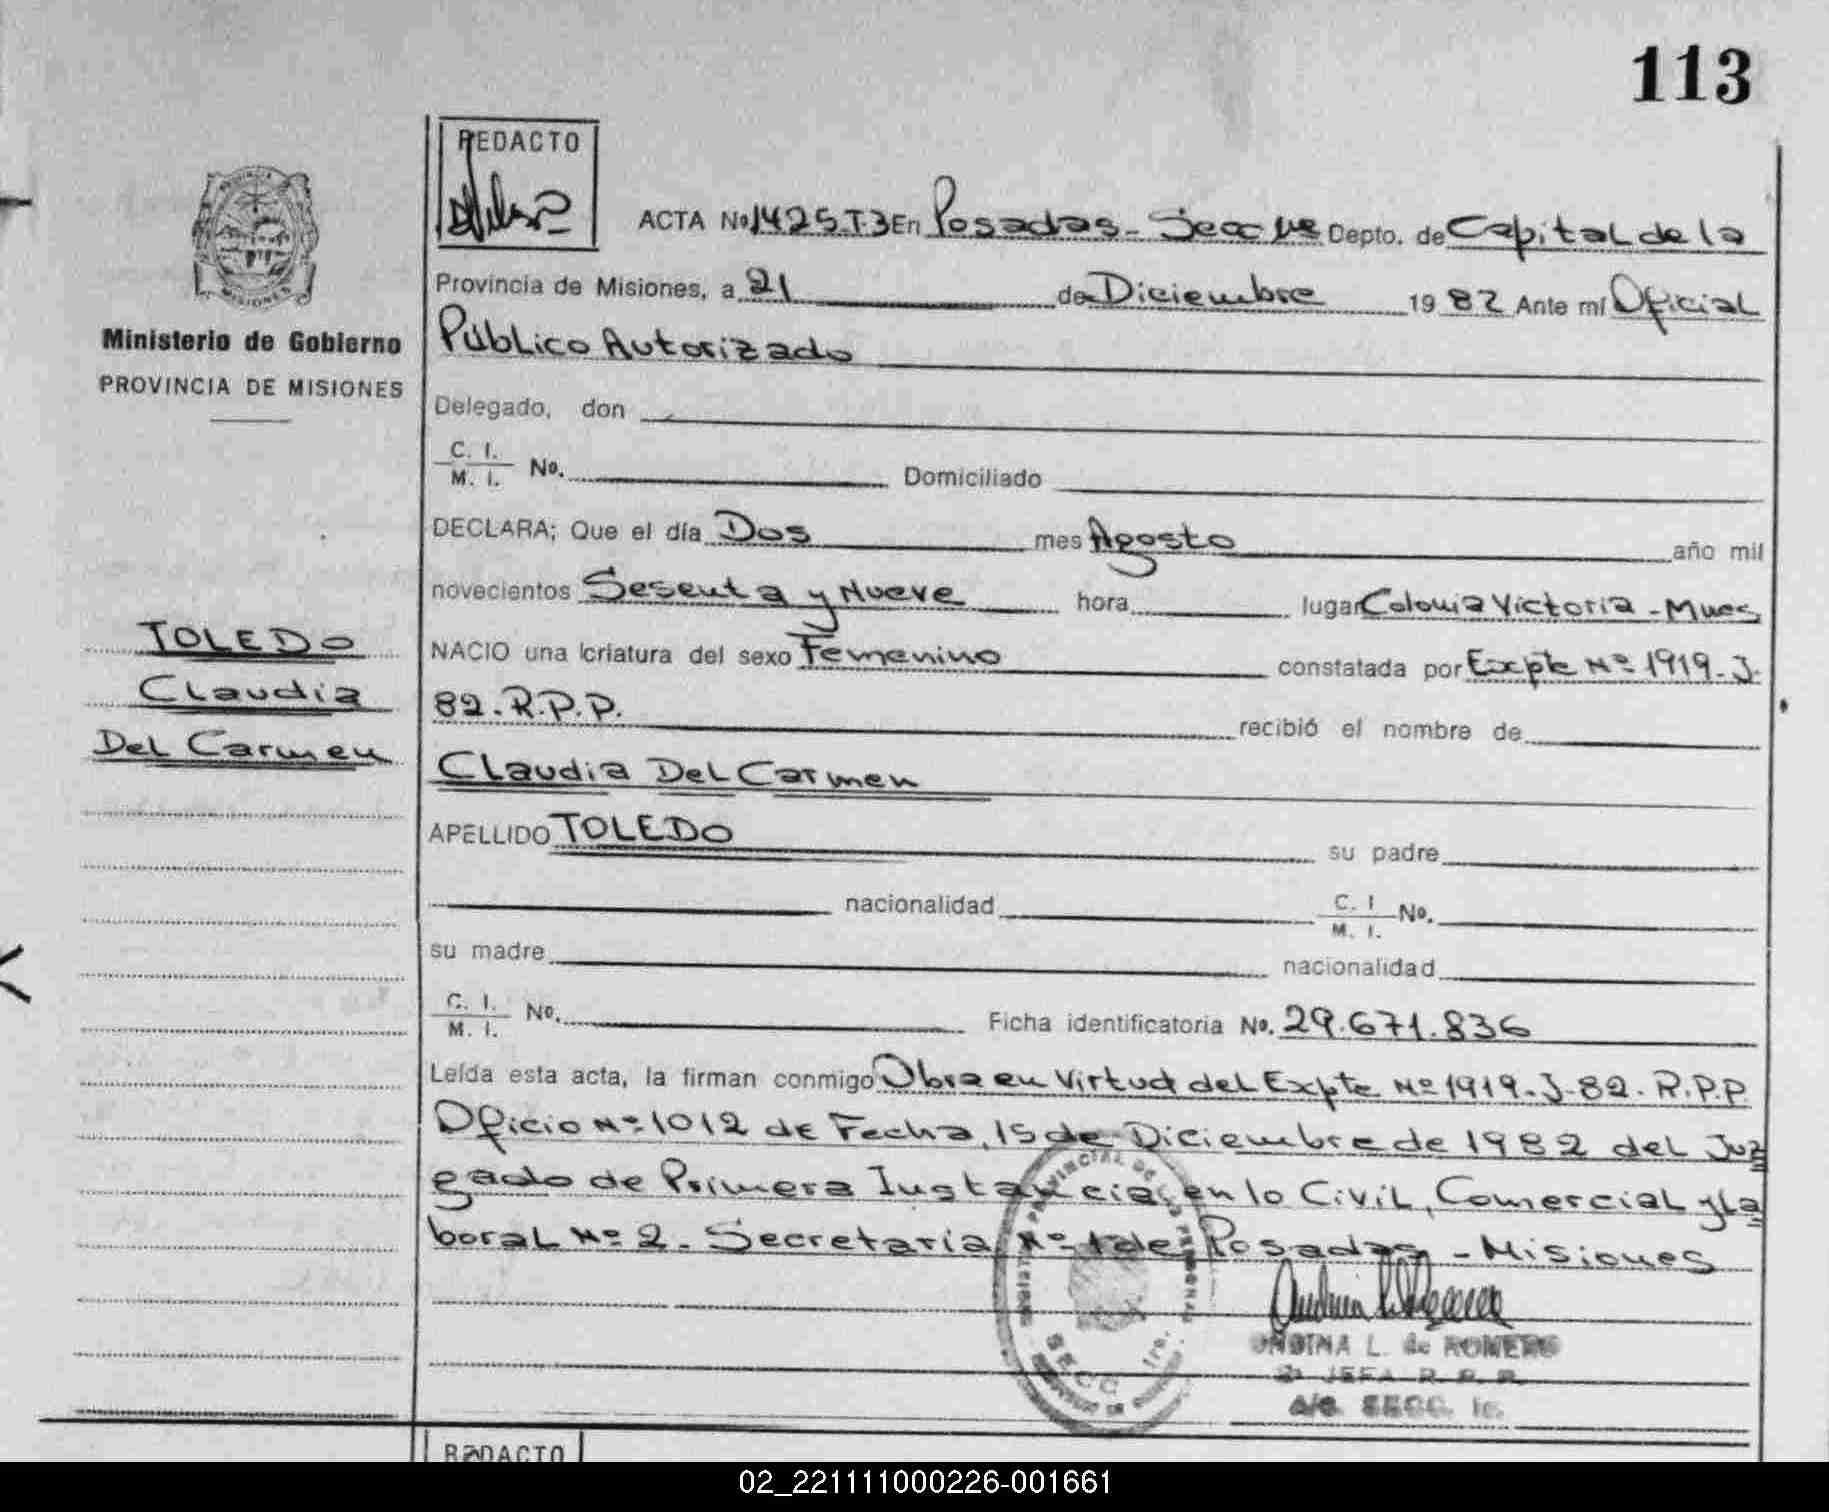 113
REDACTO
ACTA No 1425.T.3 En Posadas - Secc 1ra Depto. de Capital de la
Provincia de Misiones, a 21 de Diciembre 1982 Ante mí Oficial
Público Autorizado
Ministerio de Gobierno
PROVINCIA DE MISIONES
Delegado, don
C. I.
M. I. No. Domiciliado
DECLARA; Que el día Dos mes Agosto año mil
novecientos Sesenta y Nueve hora lugar Colonia Victoria - Mnes
NACIO una criatura del sexo Femenino constatada por Expte Nº 1919-J-
82. R.P.P. recibió el nombre de
Claudia Del Carmen
APELLIDO TOLEDO su padre
TOLEDO
Claudia
Del Carmen
nacionalidad C. I
M. I. No.
su madre nacionalidad
C. I.
M. I. No. Ficha identificatoria No. 29.671.836
Leída esta acta, la firman conmigo Obra en Virtud del Expte Nº 1919-J-82. R.P.P.
Oficio Nº 1012 de Fecha, 15 de Diciembre de 1982 del Juz
gado de Primera Instancia, en lo Civil, Comercial y La
boral Nº 2. Secretaria Nº 1 de Posadas - Misiones
SECC. 1ra.
ONDINA L. de ROMERO
JEFA R. P. P.
a/c. SECC. 1a.
REDACTO
02_221111000226-001661